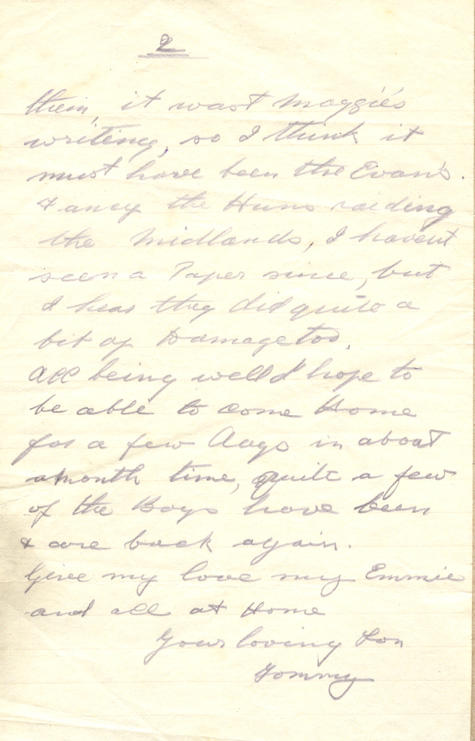 2
them, it wast Maggies
writing, so I think it
must have been the Evan's.
Fancy the Huns raiding
the Midlands, I havent
seen a Paper since, but
I hear they did quite a
bit of Damage too.
All being well I hope to
be able to come Home
for a few days in about
a month time, quite a few
of the Boys have been
& are back again.
Give my love my Emmie
and all at Home
Your loving Son
Tommy